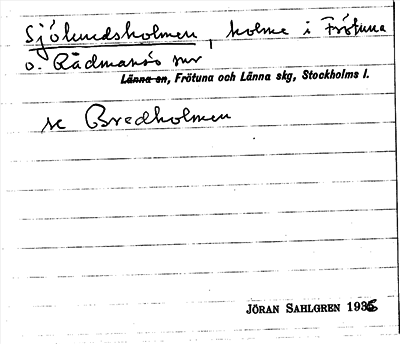 Sjölundsholmen, holme i Frötuna
o. Rådmansö snr
Länna sn, Frötuna och Länna skg, Stockholms l.
se Bredholmen
JÖRAN SAHLGREN 1935